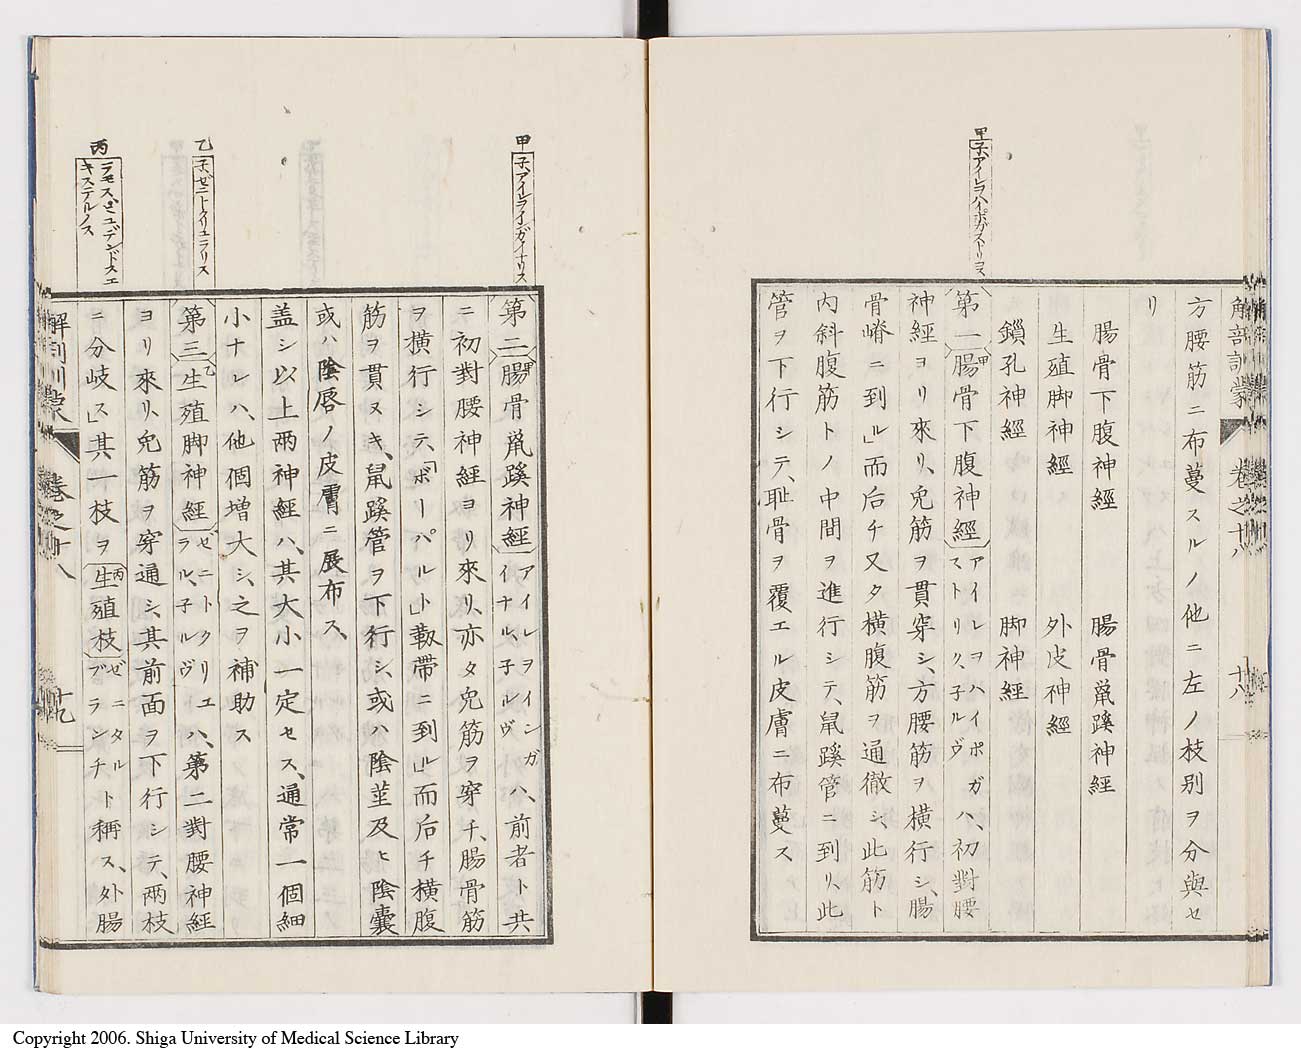 解剖訓蒙 卷之十八 十八
方腰筋ニ布蔓スルノ他ニ左ノ枝別ヲ分與セ
リ
腸骨下腹神經 腸骨鼠蹊神經
生殖脚神經 外皮神經
鎖孔神經 脚神經
甲 子、アイレヲハイポガストーリコス
第一 甲腸骨下腹神經 アイレヲハイポガ
ストリク、子ルヴ ハ、初對腰
神經ヨリ來リ、免筋ヲ貫穿シ、方腰筋ヲ横行シ、腸
骨嵴ニ到ル」而后チ又タ横腹筋ヲ通徹シ、此筋ト
内斜腹筋トノ中間ヲ進行シテ、鼠蹊管ニ到リ、此
管ヲ下行シテ、耻骨ヲ覆エル皮膚ニ布蔓ス
甲 子、アイレヲインガイナリス
第二 甲腸骨鼠蹊神經 アイレヲインガ
イナル、子ルヴ ハ、前者ト共
ニ初對腰神經ヨリ來リ、亦タ免筋ヲ穿チ、腸骨筋
ヲ横行シテ、「ボーリパルト」靱帶ニ到ル」而后チ横腹
筋ヲ貫ヌキ、鼠蹊管ヲ下行シ、或ハ陰莖及ヒ陰囊
或ハ陰唇ノ皮膚ニ展布ス、
盖シ以上兩神經ハ、其大小一定セス、通常一個細
小ナレハ、他個增大シ、之ヲ補助ス
乙 子、ゼニトクリュラリス
第三 乙生殖脚神經 ゼニトクリュ
ラル、子ルヴ ハ、第二對腰神經
ヨリ來リ、免筋ヲ穿通シ、其前面ヲ下行シテ、兩枝
丙 ラモス、ピュデンドスエ
キステルノス
ニ分岐ス」其一枝ヲ 丙生殖枝 ゼニタル
ブランチ ト稱ス、外腸
解剖訓蒙 卷之十八 十九
Copyright 2006. Shiga University of Medical Science Library